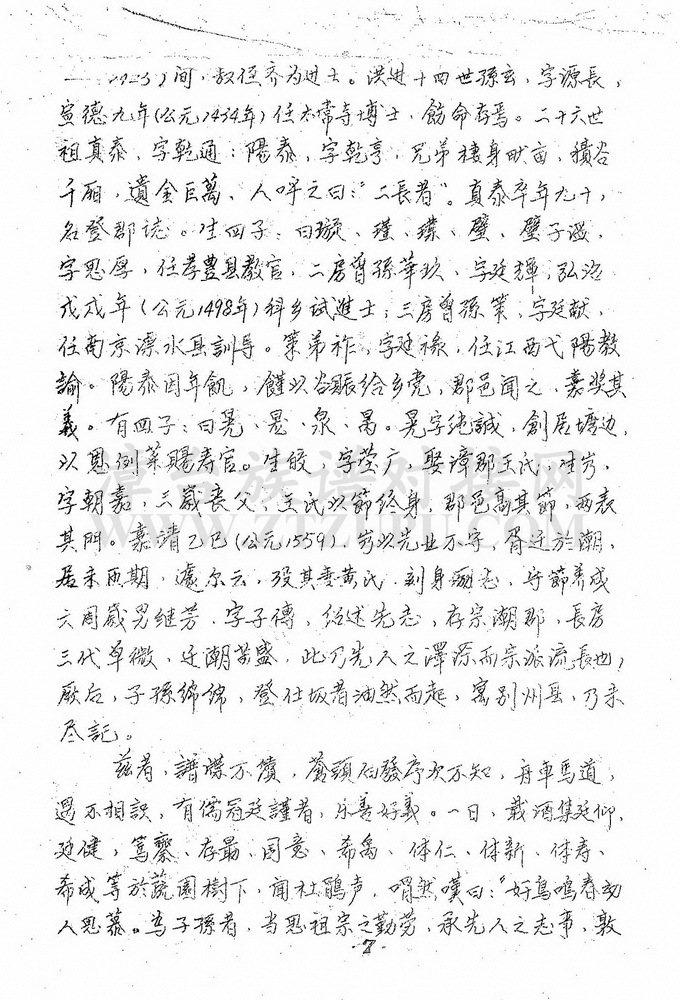 间，叔侄齐为进士。洪进十四世孫玄，字源長，
宣德九年(公元1434年)任太常寺博士，飭命存焉。二十六世
祖真泰，字乾通；陽泰，字乾亨，兄弟棲身畎亩，積谷
千厢，遺金巨萬、人呼之曰："二長者"。真泰卒年九十，
名登郡誌。生四子：曰璇、瑾、璞、壁、壁子温，
字思厚，任孝豊县教官，二房曾孫華玖、字廷輝，弘治
戊戌年(公元1498年)科乡试進士；三房曾孫策，字廷献，
任南京溧水县訓导。策弟祚，字廷禄，任江西弋陽教
諭。陽泰因年飢，饉以谷賑给乡党，郡邑闻之，嘉奖其
義。有四子：曰晃、晟、泉、昺。晃字纯誠，創居塘边，
以恩例荣赐寿官。生皎，字莹广，娶漳郡王氏，生岁，
字朝嘉，三歲丧父，王氏以節终身，郡邑高其節，两表
其門。嘉靖乙巳(公元1559)，岁以先业不守，胥迁於潮，
居未两期，遽尔云，殁其妻黄氏，刻身励志，守節养成
六周歲男继芳，字子傳，绍述先志，存宗潮郡，長房
三代单微，迁潮蕃盛，此乃先人之澤源而宗派流長也，
厥后，子孫绵绵，登仕坂者油然而起，寓别州县，乃未
尽記。
兹者，譜牒不續，蒼頭伯發序次不知，舟車馬道，
遇不相識，有儒冠廷謹者，乐善好義。一日，載酒集廷仰，
廷健，篤齋、存最、国意、希禹、体仁、体新、体寿、
希成等於蔬園樹下，闻杜鵑声，喟然嘆曰："好鳥鳴春动
人思慕。為子孫者，当思祖宗之勤劳，承先人之志事，敦
·7·
津市族谱对接网